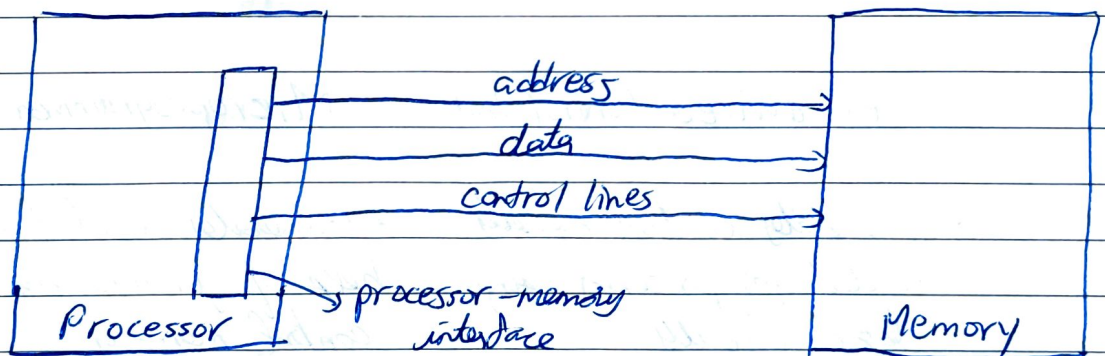 address
data
control lines
processor-memory
interface
Processor
Memory